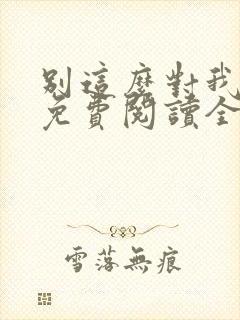 別這麼對我
免費閱讀全
雪落無痕